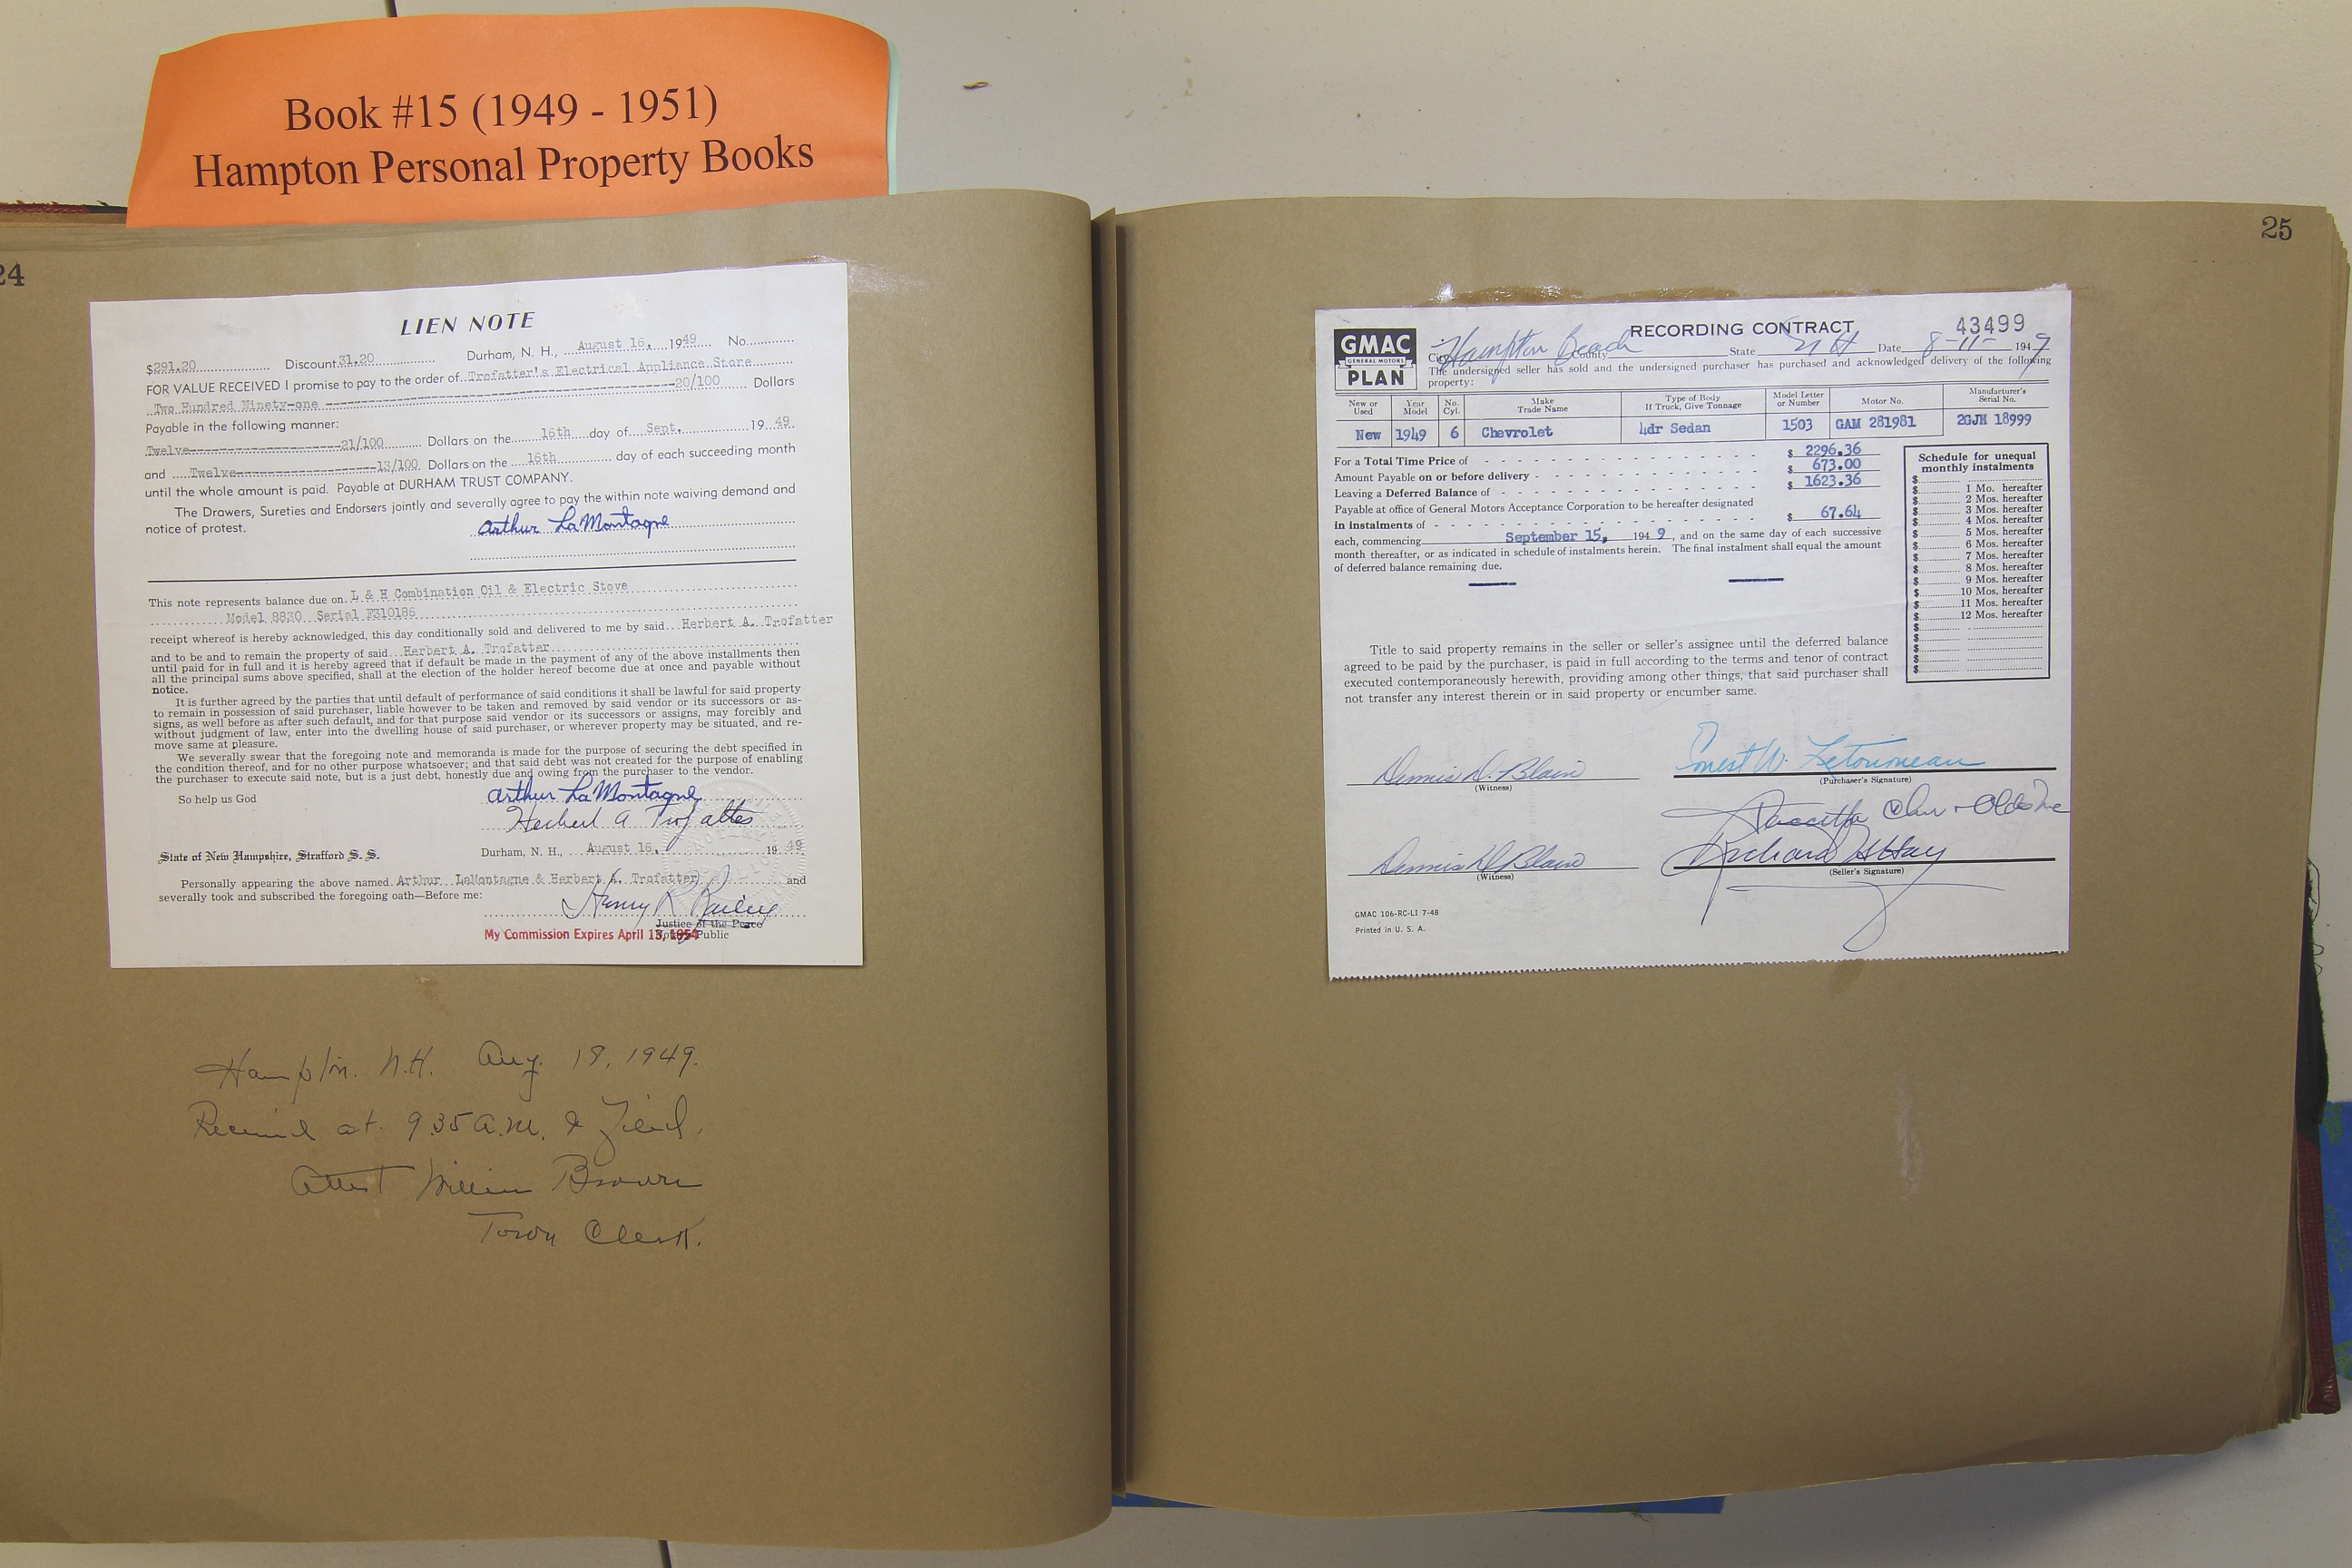 Book #15 (1949 - 1951)
Hampton Personal Property Books
24
LIEN NOTE
$291.20 Discount 31.20 Durham, N. H., August 16, 1949 No.
FOR VALUE RECEIVED I promise to pay to the order of Trofatter's Electrical Appliance Store
Two Hundred Ninety-one ---20/100 Dollars
Payable in the following manner:
Twelve---21/100 Dollars on the 16th day of Sept. 19 49
and Twelve---13/100 Dollars on the 16th day of each succeeding month
until the whole amount is paid. Payable at DURHAM TRUST COMPANY.
The Drawers, Sureties and Endorsers jointly and severally agree to pay the within note waiving demand and
notice of protest.
Arthur LaMontagne
This note represents balance due on L & H Combination Oil & Electric Stove
Model 8830 Serial F310186
receipt whereof is hereby acknowledged, this day conditionally sold and delivered to me by said Herbert A. Trofatter
and to be and to remain the property of said Herbert A. Trofatter
until paid for in full and it is hereby agreed that if default be made in the payment of any of the above installments then
all the principal sums above specified, shall at the election of the holder hereof become due at once and payable without
notice.
It is further agreed by the parties that until default of performance of said conditions it shall be lawful for said property
to remain in possession of said purchaser, liable however to be taken and removed by said vendor or its successors or as-
signs, as well before as after such default, and for that purpose said vendor or its successors or assigns, may forcibly and
without judgment of law, enter into the dwelling house of said purchaser, or wherever property may be situated, and re-
move same at pleasure.
We severally swear that the foregoing note and memoranda is made for the purpose of securing the debt specified in
the condition thereof, and for no other purpose whatsoever; and that said debt was not created for the purpose of enabling
the purchaser to execute said note, but is a just debt, honestly due and owing from the purchaser to the vendor.
So help us God
Arthur LaMontagne
Herbert A Trofatter
State of New Hampshire, Strafford S. S.
Durham, N. H., August 16, 19 49
Personally appearing the above named Arthur LaMontagne & Herbert A. Trofatter and
severally took and subscribed the foregoing oath—Before me:
Henry R Bailey
Justice of the Peace
My Commission Expires April 13, 1954
Notary Public
Hampton. N.H. Aug. 18, 1949.
Received at. 9.35 A.M. & Filed.
Attest William Brown
Town Clerk.
25
GMAC
GENERAL MOTORS
PLAN
RECORDING CONTRACT 43499
City Hampton Beach County State N H Date 8-11- 1949
The undersigned seller has sold and the undersigned purchaser has purchased and acknowledged delivery of the following
property:
New or Used Year Model No. Cyl. Make Trade Name Type of Body If Truck, Give Tonnage Model Letter or Number Motor No. Manufacturer's Serial No.
New 1949 6 Chevrolet 4dr Sedan 1503 GAM 281981 2GJH 18999
For a Total Time Price of $ 2296.36
Amount Payable on or before delivery $ 673.00
Leaving a Deferred Balance of $ 1623.36
Payable at office of General Motors Acceptance Corporation to be hereafter designated
in instalments of $ 67.64
each, commencing September 15, 194 9, and on the same day of each successive
month thereafter, or as indicated in schedule of instalments herein. The final instalment shall equal the amount
of deferred balance remaining due.
Schedule for unequal
monthly instalments
$
$ 1 Mo. hereafter
$ 2 Mos. hereafter
$ 3 Mos. hereafter
$ 4 Mos. hereafter
$ 5 Mos. hereafter
$ 6 Mos. hereafter
$ 7 Mos. hereafter
$ 8 Mos. hereafter
$ 9 Mos. hereafter
$ 10 Mos. hereafter
$ 11 Mos. hereafter
$ 12 Mos. hereafter
$
$
$
$
$
Title to said property remains in the seller or seller's assignee until the deferred balance
agreed to be paid by the purchaser, is paid in full according to the terms and tenor of contract
executed contemporaneously herewith, providing among other things, that said purchaser shall
not transfer any interest therein or in said property or encumber same.
Dennis D. Blain
(Witness)
Ernest W. Letourneau
(Purchaser's Signature)
Dennis D Blain
(Witness)
Richard
(Seller's Signature)
GMAC 106-RC-LI 7-48
Printed in U. S. A.